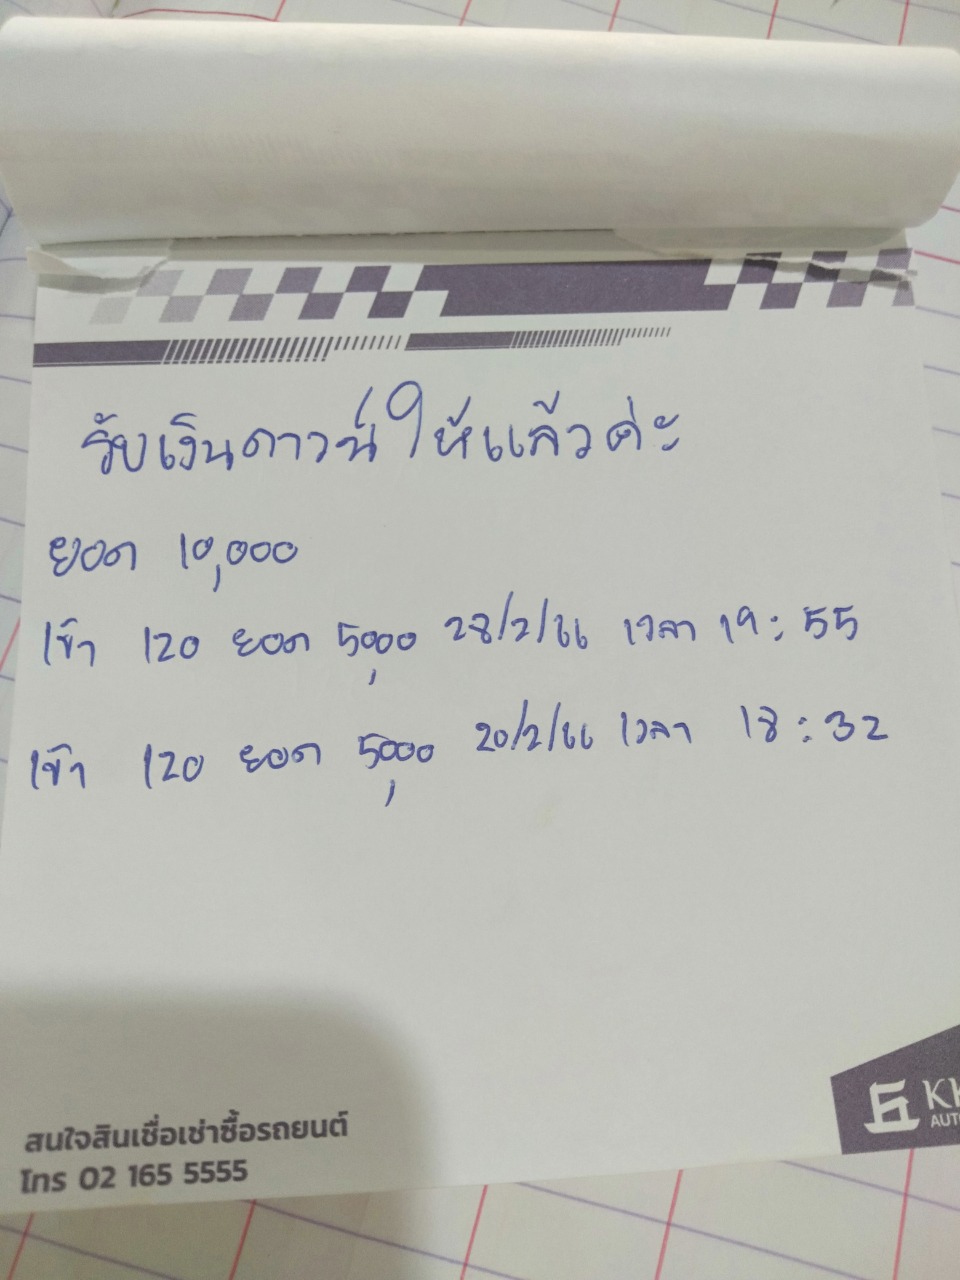 รับเงินดาวน์ให้แล้วค่ะ
ยอด 10,000
เข้า 120 ยอด 5,000 28/2/66 เวลา 19:55
เข้า 120 ยอด 5,000 20/2/66 เวลา 18:32
สนใจสินเชื่อเช่าซื้อรถยนต์
โทร 02 165 5555
KK
AUTO